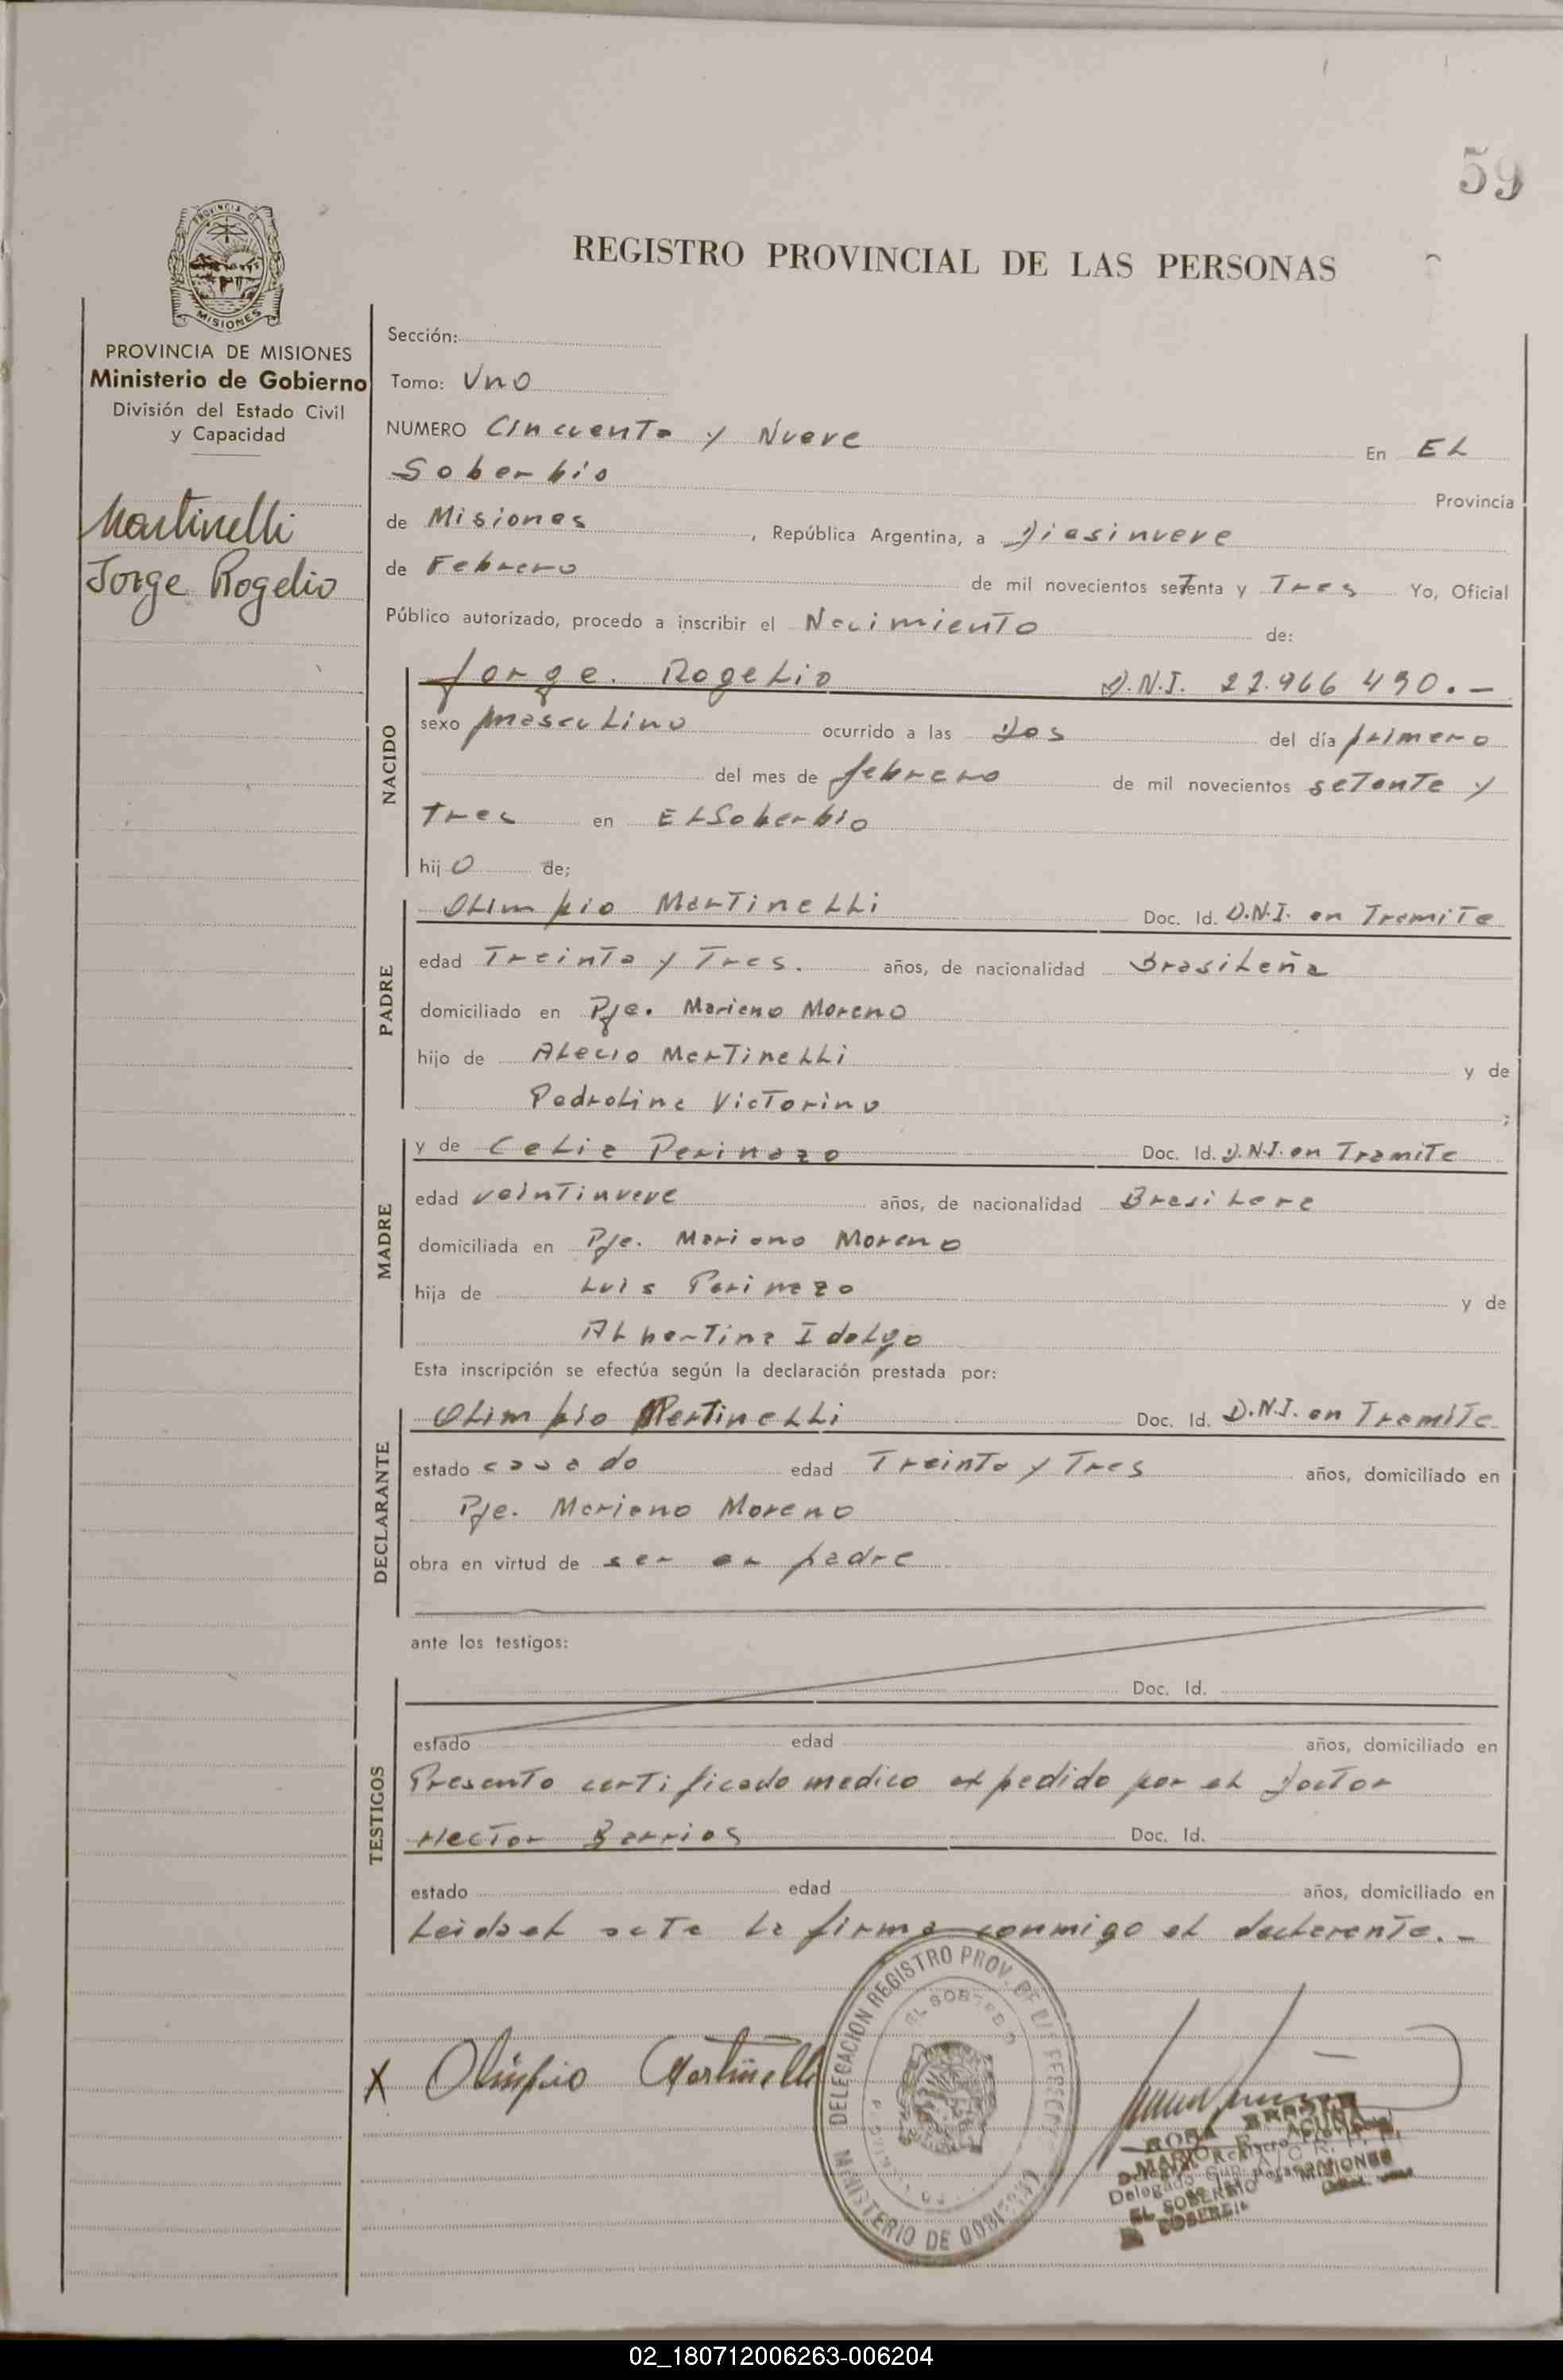 59
PROVINCIA DE
MISIONES
REGISTRO PROVINCIAL DE LAS PERSONAS
PROVINCIA DE MISIONES
Ministerio de Gobierno
División del Estado Civil
y Capacidad
Martinelli
Jorge Rogelio
Sección:
Tomo: Uno
NUMERO Cincuenta y Nueve En EL
Soberbio Provincia
de Misiones, República Argentina, a Diesinueve
de Febrero de mil novecientos setenta y Tres Yo, Oficial
Público autorizado, procedo a inscribir el Nacimiento de:
NACIDO
Jorge. Rogelio D.N.I. 22.966 490.-
sexo masculino ocurrido a las dos del día primero
del mes de febrero de mil novecientos setenta y
tres en El Soberbio
hijo de;
PADRE
Olimpio Martinelli Doc. Id. D.N.I. en Tramite
edad Treinta y Tres. años, de nacionalidad Brasileña
domiciliado en Pje. Mariano Moreno
hijo de Alecio Martinelli y de
Pedrolina Victorino ;
MADRE
y de Celia Perinazo Doc. Id. D.N.I. en Tramite
edad veintinueve años, de nacionalidad Brasilera
domiciliada en Pje. Mariano Moreno
hija de Luis Perinazo y de
Albertina Idalgo
Esta inscripción se efectúa según la declaración prestada por:
DECLARANTE
Olimpio Martinelli Doc. Id. D.N.I. en Tramite
estado casado edad Treinta y Tres años, domiciliado en
Pje. Mariano Moreno
obra en virtud de ser el padre
ante los testigos:
TESTIGOS
Doc. Id.
estado edad años, domiciliado en
Presento certificado medico expedido por el doctor
Hector Barrios Doc. Id.
estado edad años, domiciliado en
Leida el acta la firma conmigo el declarante.-
X Olimpio Martinelli
DELEGACION REGISTRO PROV. DE
EL SOBERBIO
MINISTERIO DE GOBIERNO
EL SOBERBIO MISIONES
02_180712006263-006204